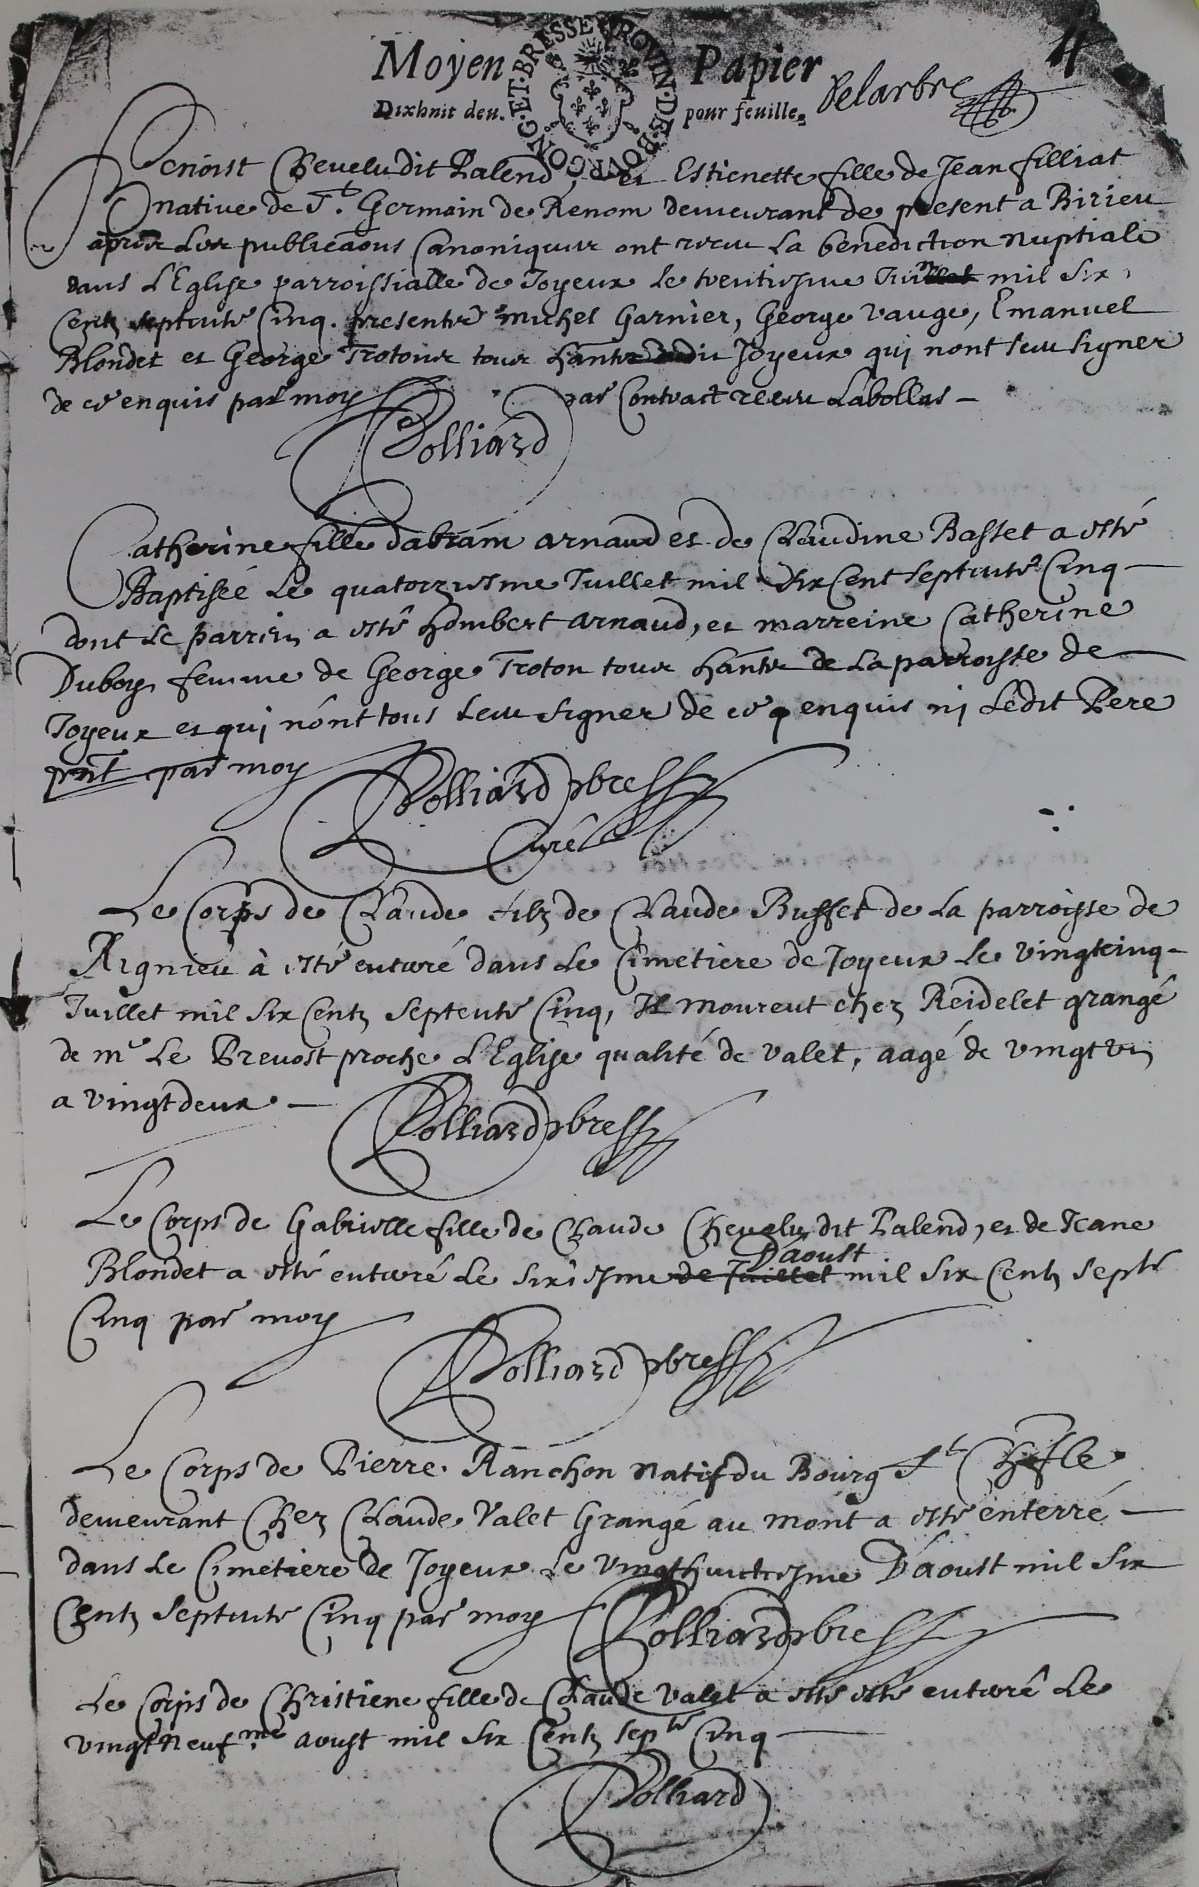 4
Moyen Papier
BOVRGONG·ET·BRESSE PROVIN·DE
Dixhuit den. pour feuille. Delarbre
Benoist Chevelu dit Palend, et Estienette fille de Jean filliat
native de St. Germain de Renom demeurant de present a Birieu
apres les publicaõns Canoniques ont receu la benediction nuptiale
dans l'Eglise parroissialle de Joyeux le trentiesme Juin mil six
Cents septente Cinq. presents michel Garnier, George vauge, Emanuel
Blondet et George Trotons tous hants dudit Joyeux qui nont sceu signer
de ce enquis par moy par Contract receu Labollas
Bolliard
Catherine fille dabram arnaud et de Claudine Basset a esté
Baptisée le quatorziesme Juillet mil six Cent septente Cinq
dont le parrein a esté humbert arnaud, et marreine Catherine
Duboys femme de George Troton tous hants de la parroisse de
Joyeux et qui nònt tous sceu signer de ce q enquis ni Ledit Pere
pnt par moy
Bolliard pbre
Curé
Le Corps de Claude filz de Claude Buffet de la parroisse de
Rignieu à esté enterré dans le Cimetiere de Joyeux le vingtcinq
Juillet mil six Cents septente Cinq, Il mourut chez Reidelet grangé
de mr Le Prevost proche L'Eglise qualité de valet, aagé de vingt un
a vingtdeux
Bolliard pbre
Le Corps de Gabrielle fille de Claude Chevelu dit Palend, et de Jeane
Daoust
Blondet a esté enterré le sixiesme de Juillet mil six Cents septte
Cinq par moy
Bolliard pbre
Le Corps de Pierre Ranchon natif du Bourg St Chfle
demeurant Chez Claude Valet Grangé au mont a esté enterré
dans le Cimetiere de Joyeux le vingthuictiesme Daoust mil six
Cents septente Cinq par moy Bolliard pbre
Le Corps de Christiene fille de Claude valet a esté esté enterré le
vingtneufme aoust mil six Cents septte Cinq
Bolliard